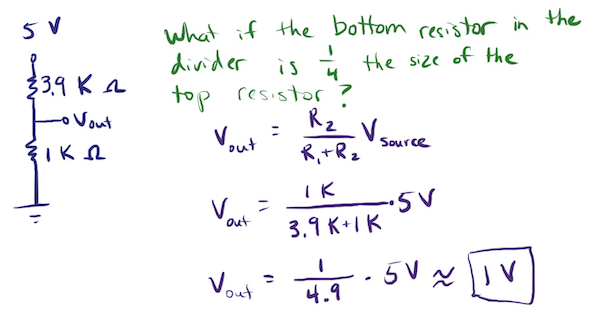 5 V
3.9 K Ω
Vout
1 K Ω
What if the bottom resistor in the
divider is 1/4 the size of the
top resistor?
Vout = R2/(R1+R2) Vsource
Vout = 1K/(3.9K+1K) · 5V
Vout = 1/4.9 · 5V ≈ 1V